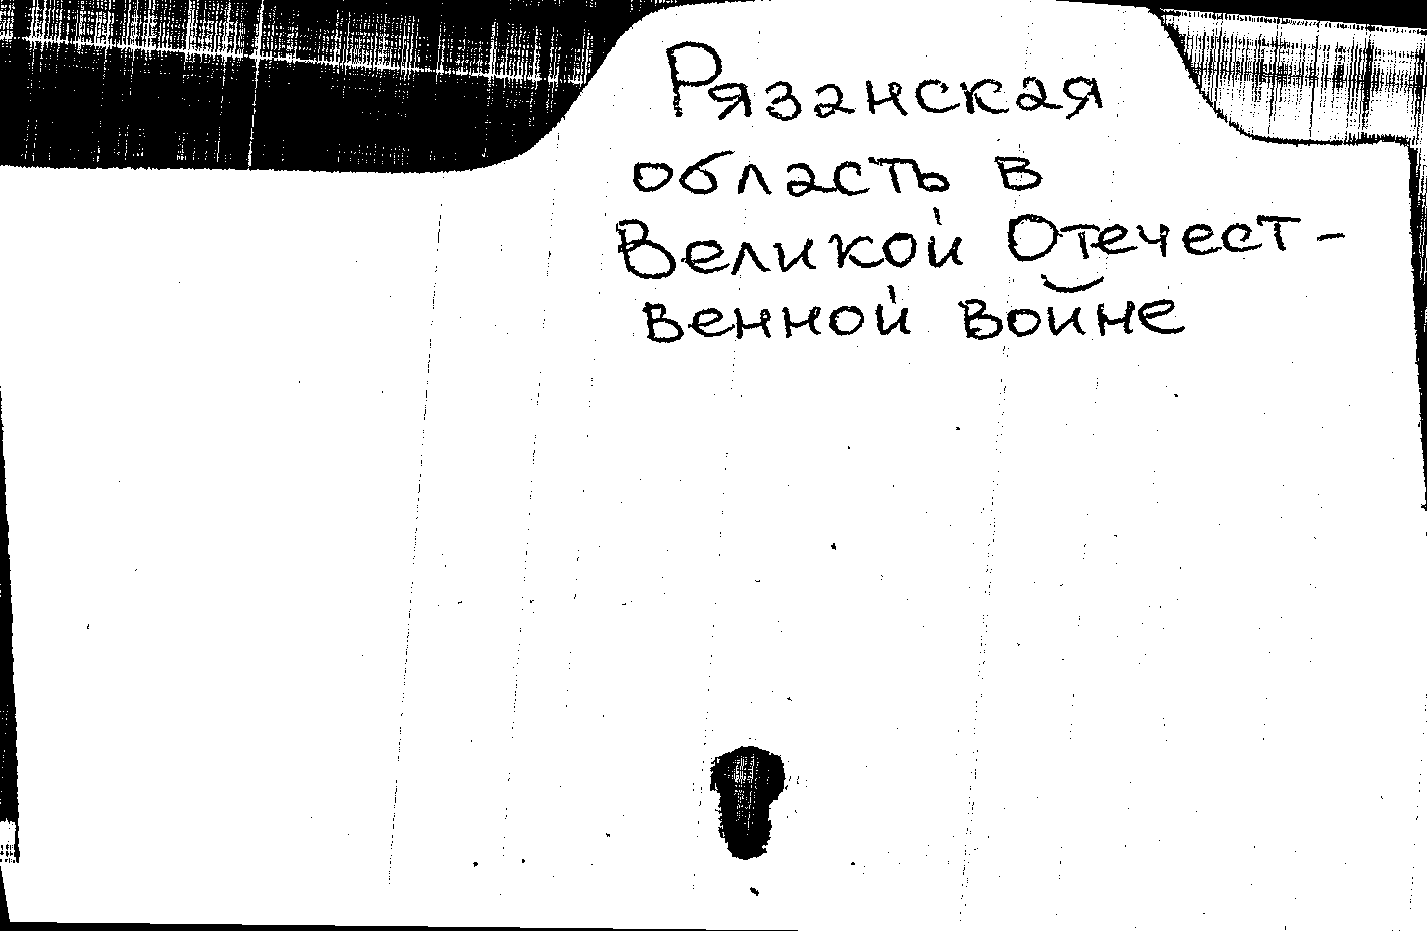 Рязанская
область в
Великой Отечест-
венной войне